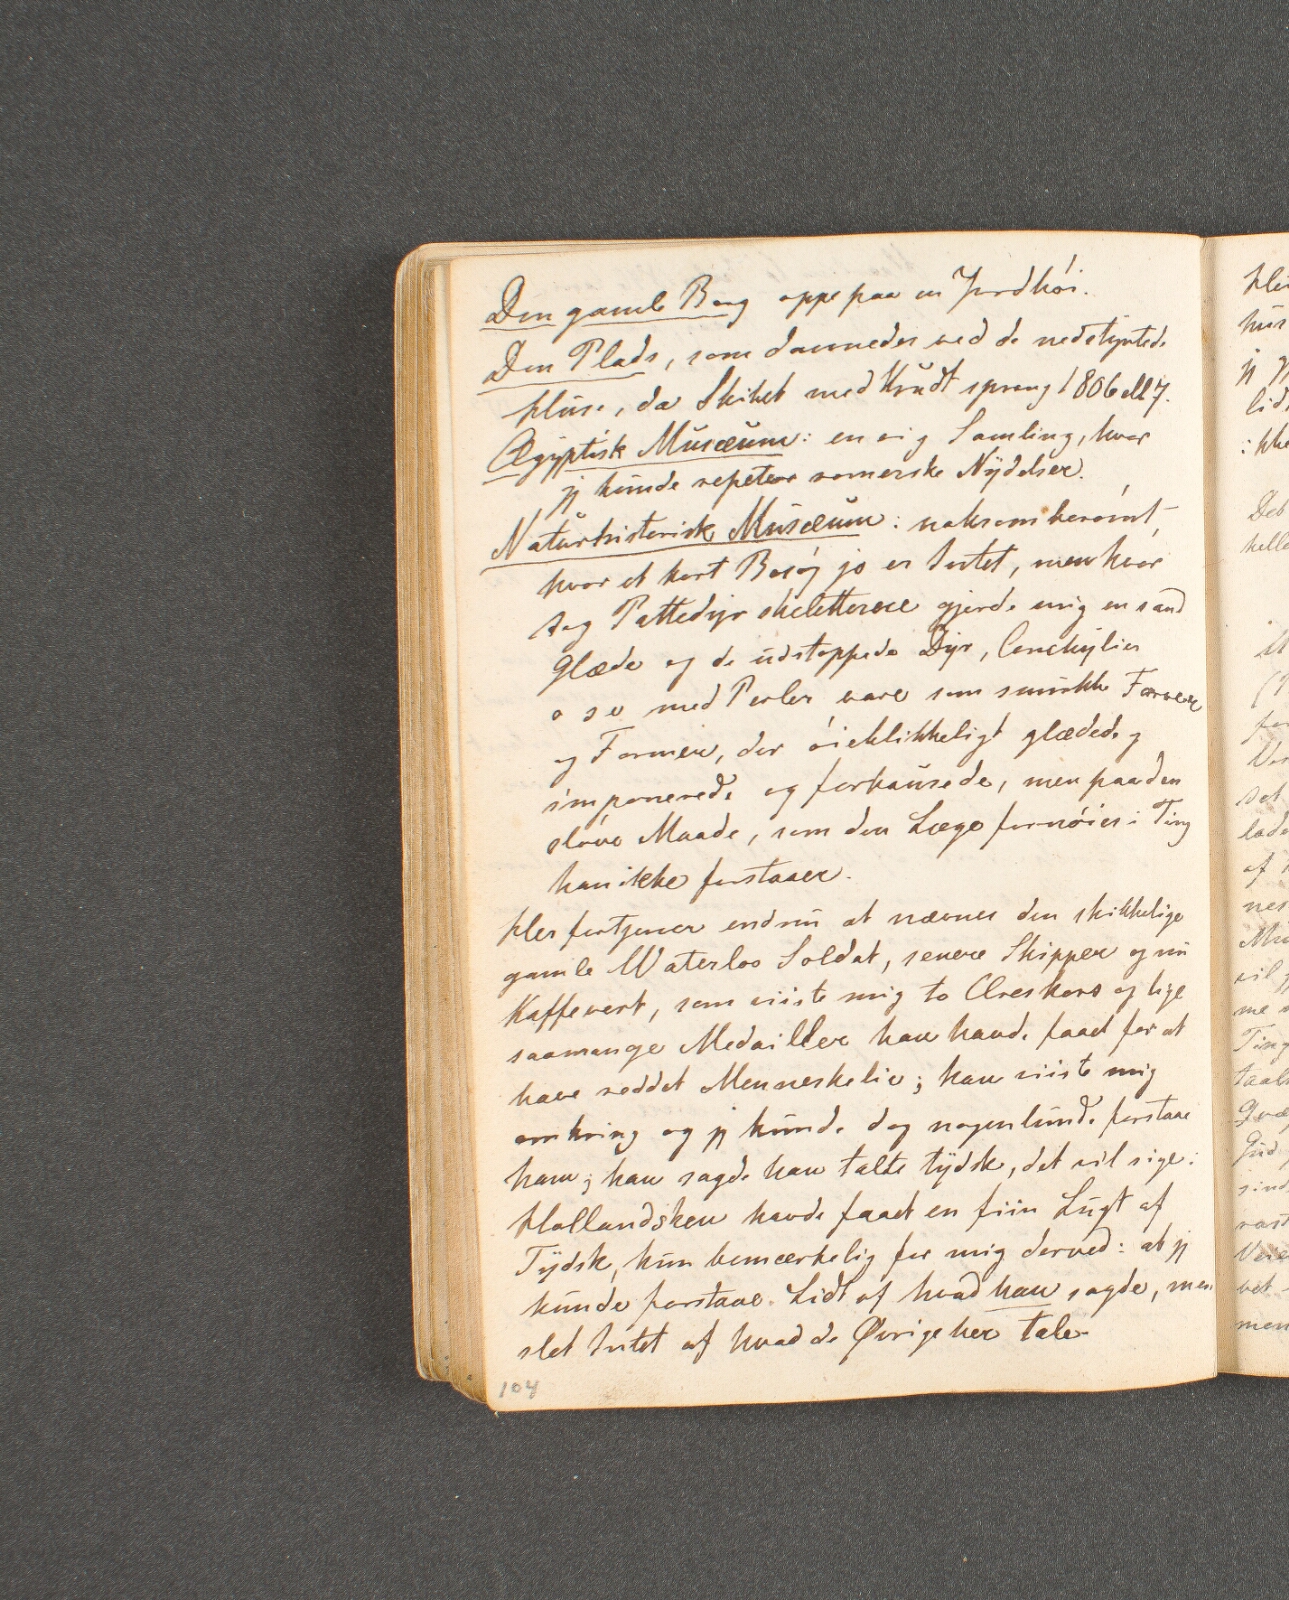 Den gamle Borg oppe paa en Jordhöi.
Den Plads, som dannedes ved de nedstyrtede
Huse, da Skibet med Krudt sprang 1806 ell 7.
Ægyptisk Musæum: en rig Samling, hvor
jeg kunde repetere romerske Nydelser.
Naturhistorisk Musæum: noksom berömt,
hvor et kort Besög jo er Intet, men hvor
dog Pattedyrskeletterne gjorde mig en sand
Glæde og de udstoppede Dyr, Conchylier
o s v med Perler vare som smukke Farver
og Former, der öieblikkeligt glædede og
imponerede og forbausede, men paa den
slöve Maade, som den Læge fornöies i Ting
han ikke forstaaer.
Her fortjener endnu at nævnes den skikkelige
gamle Waterloo Soldat, senere Skipper og nu
Kaffevert, som viiste mig to Æreskors og lige
saamange Medailler han havde faaet for at
have reddet Menneskeliv; han viiste mig
omkring og jeg kunde dog nogenlunde forstaae
ham; han sagde han talte tydsk, det vil sige:
Hollandsken havde faaet en fiin Lugt af
Tydsk, kun bemærkelig for mig derved: at jeg
kunde forstaae Lidt af hvad han sagde, men
slet Intet af hvad de Øvrige her tale.
104